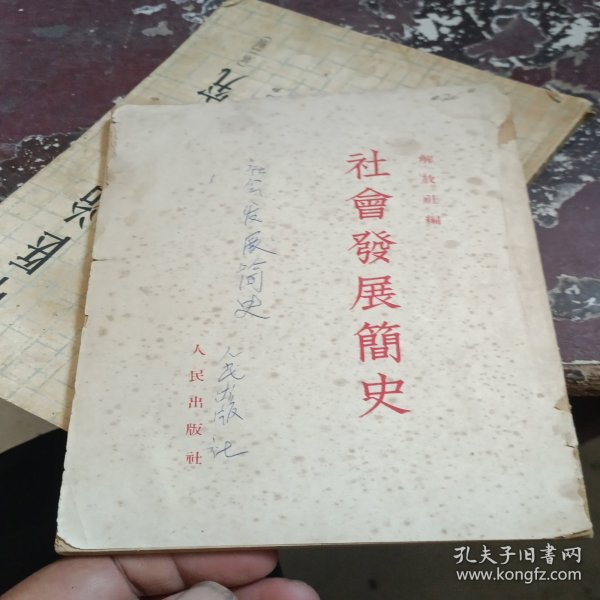 解放社編
社會發展簡史
社会发展简史
人民出版社
人民出版社
孔夫子旧书网
www.kongfz.com